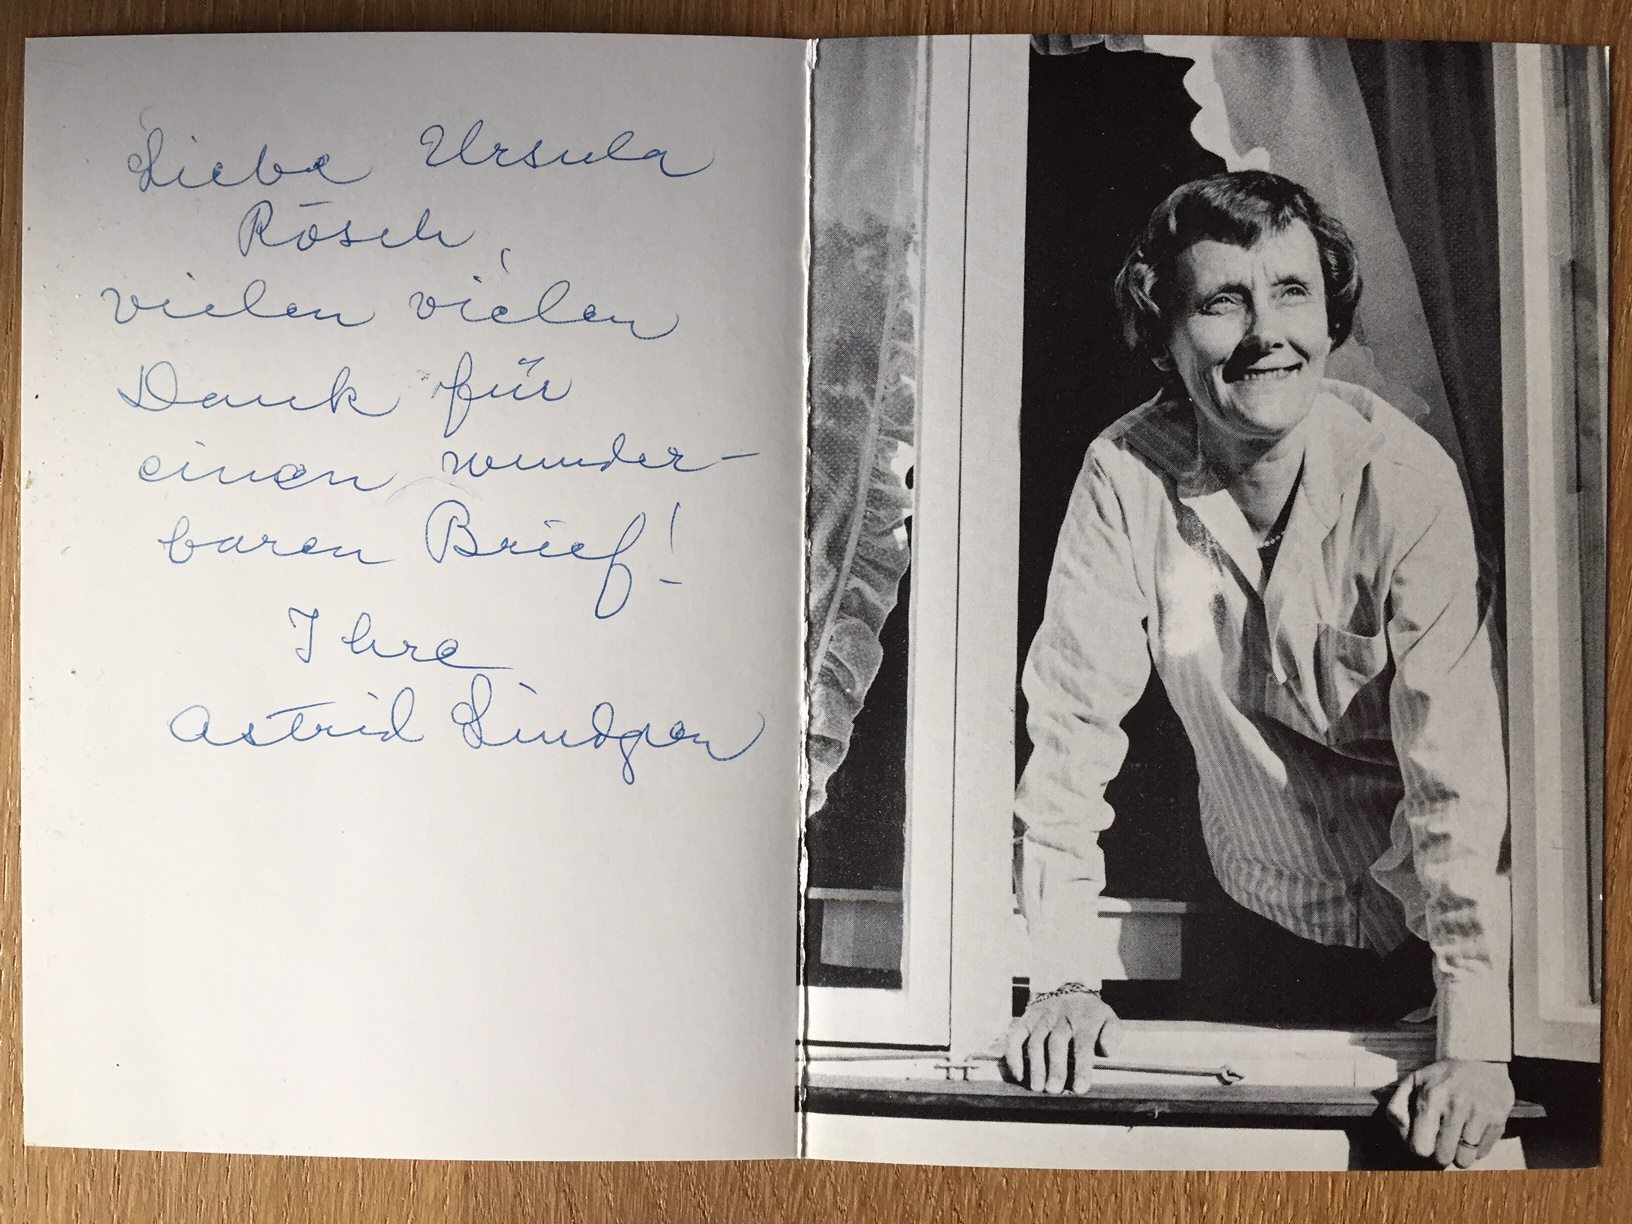 Liebe Ursula
Rösch,
vielen vielen
Dank für
einen wunder-
baren Brief!
Ihre
Astrid Lindgren